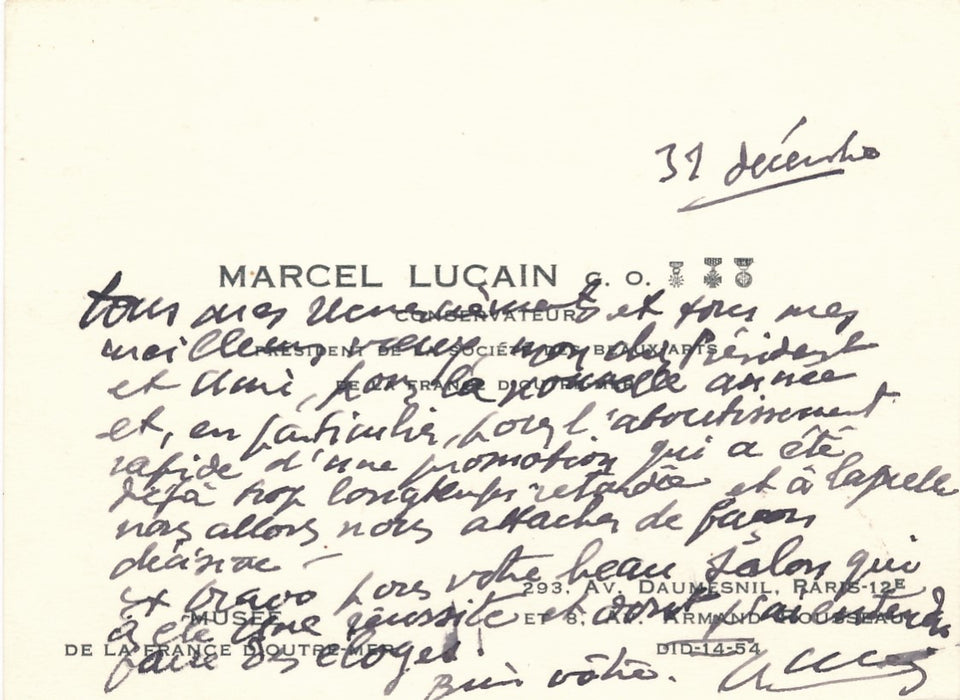 31 décembre
MARCEL LUCAIN G. O.
CONSERVATEUR
PRÉSIDENT DE LA SOCIÉTÉ DES BEAUX-ARTS
DE LA FRANCE D'OUTRE-MER
tous mes remerciements et tous mes
meilleurs vœux, mon cher Président
et Ami, pour la nouvelle année
et, en particulier, pour l'aboutissement
rapide d'une promotion qui a été
déjà trop longtemps retardée et à laquelle
nous allons nous attacher de façon
décisive –
et bravo pour votre beau Salon qui
a été une réussite et dont j'ai entendu
faire des éloges !
Bien vôtre.
293, AV. DAUMESNIL, PARIS-12E
MUSÉE
ET 8, AV. ARMAND-ROUSSEAU
DE LA FRANCE D'OUTRE-MER
DID-14-54